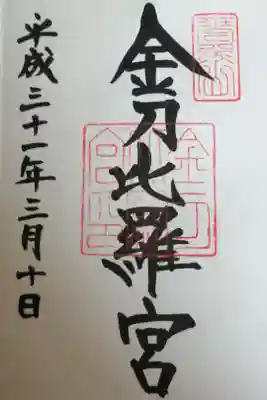 金刀比羅宮
平成三十一年三月十日